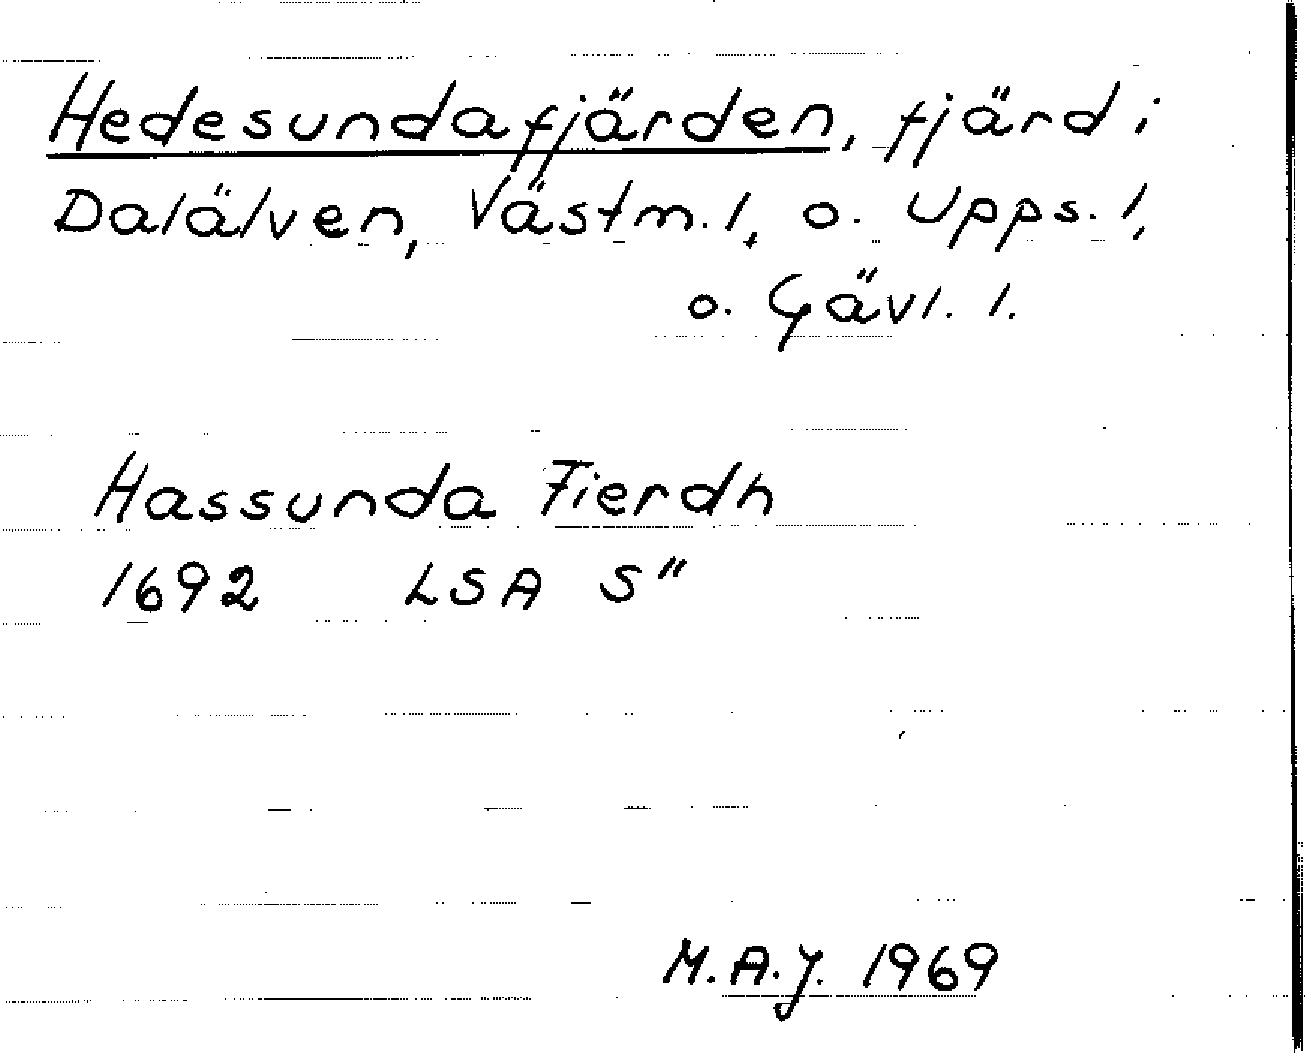 Hedesundafjärden, fjärd i
Dalälven, Västm. l, o. Upps. l,
o. Gävl. l.
Hassunda Fierdh
1692 LSA S"
M.A.J. 1969